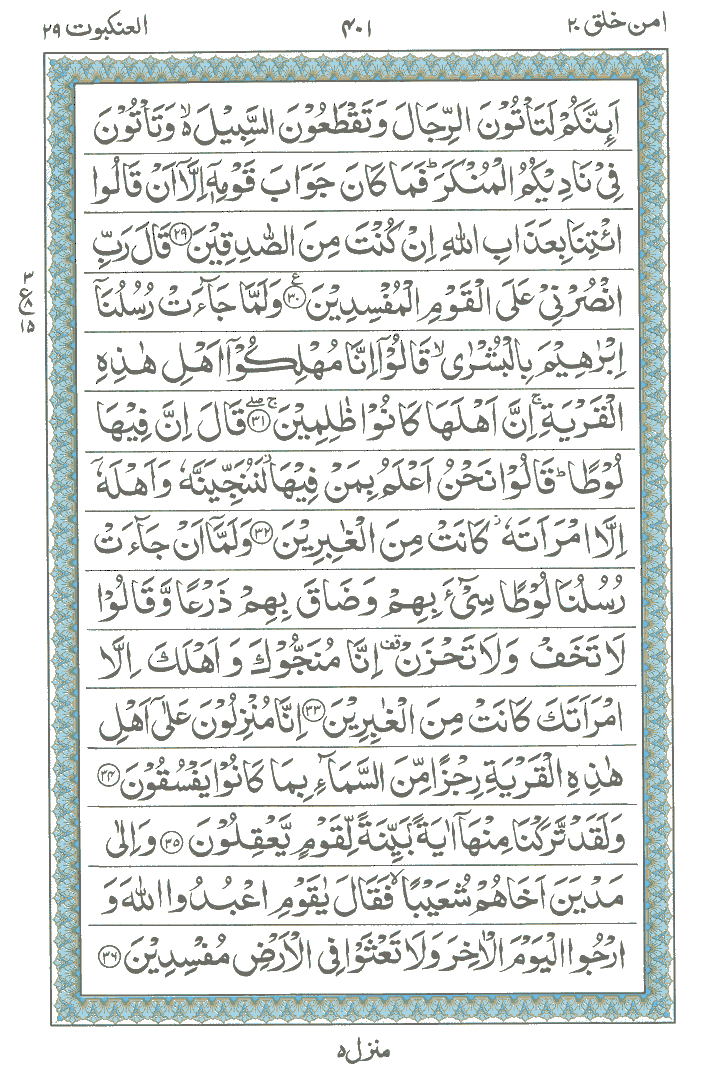 امن خلق ۲۰
۴۰۱
العنكبوت ۲۹
اَىِٕنَّكُمْ لَتَاْتُوْنَ الرِّجَالَ وَتَقْطَعُوْنَ السَّبِيْلَ ۙ۬ وَتَاْتُوْنَ
فِيْ نَادِيْكُمُ الْمُنْكَرَ ؕ فَمَا كَانَ جَوَابَ قَوْمِهٖۤ اِلَّاۤ اَنْ قَالُوا
ائْتِنَا بِعَذَابِ اللّٰهِ اِنْ كُنْتَ مِنَ الصّٰدِقِيْنَ ۲۹ قَالَ رَبِّ
انْصُرْنِيْ عَلَى الْقَوْمِ الْمُفْسِدِيْنَ ۳۰ ع وَلَمَّا جَآءَتْ رُسُلُنَاۤ
۳
ع
۸
۱۵
اِبْرٰهِيْمَ بِالْبُشْرٰى ۙ قَالُوْۤا اِنَّا مُهْلِكُوْۤا اَهْلِ هٰذِهِ
الْقَرْيَةِ ۚ اِنَّ اَهْلَهَا كَانُوْا ظٰلِمِيْنَ ۳۱ ۚۖ قَالَ اِنَّ فِيْهَا
لُوْطًا ؕ قَالُوْا نَحْنُ اَعْلَمُ بِمَنْ فِيْهَا ۥ٘ لَنُنَجِّيَنَّهٗ وَاَهْلَهٗۤ
اِلَّا امْرَاَتَهٗ ۥ٘ كَانَتْ مِنَ الْغٰبِرِيْنَ ۳۲ وَلَمَّاۤ اَنْ جَآءَتْ
رُسُلُنَا لُوْطًا سِيْٓءَ بِهِمْ وَضَاقَ بِهِمْ ذَرْعًا وَّقَالُوْا
لَا تَخَفْ وَلَا تَحْزَنْ ۫ اِنَّا مُنَجُّوْكَ وَاَهْلَكَ اِلَّا
امْرَاَتَكَ كَانَتْ مِنَ الْغٰبِرِيْنَ ۳۳ اِنَّا مُنْزِلُوْنَ عَلٰۤى اَهْلِ
هٰذِهِ الْقَرْيَةِ رِجْزًا مِّنَ السَّمَآءِ بِمَا كَانُوْا يَفْسُقُوْنَ ۳۴
وَلَقَدْ تَّرَكْنَا مِنْهَاۤ اٰيَةًۢ بَيِّنَةً لِّقَوْمٍ يَّعْقِلُوْنَ ۳۵ وَاِلٰى
مَدْيَنَ اَخَاهُمْ شُعَيْبًا ۙ فَقَالَ يٰقَوْمِ اعْبُدُوا اللّٰهَ وَ
ارْجُوا الْيَوْمَ الْاٰخِرَ وَلَا تَعْثَوْا فِي الْاَرْضِ مُفْسِدِيْنَ ۳۶
منزل ۵